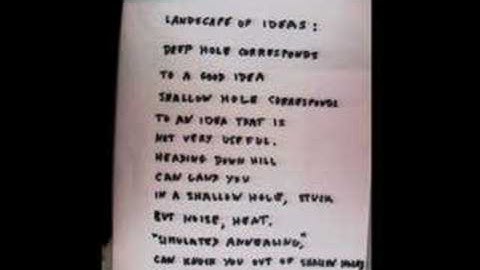 LANDSCAPE OF IDEAS:
DEEP HOLE CORRESPONDS
TO A GOOD IDEA
SHALLOW HOLE CORRESPONDS
TO AN IDEA THAT IS
NOT VERY USEFUL.
HEADING DOWN HILL
CAN LAND YOU
IN A SHALLOW HOLE, STUCK
BUT NOISE, HEAT,
"SIMULATED ANNEALING,"
CAN KNOCK YOU OUT OF SHALLOW HOLES